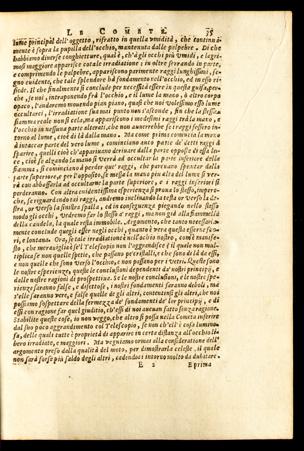 LE COMETE. 35
lume principal dell'oggetto, rifratto in quella umidità, che continuamente
è sopra la pupilla dell'occhio, mantenuta dalle palpebre. Di che
habbiamo diverse conghietture, qual è, ch'à gli occhi più umidi, e
maggiore apparisce cotale irradiazione: in oltre serrando in parte,
e comprimendo le palpebre, appariscono parimente raggi lunghissimi,
che tale splendore hà fondamento nell'occhio, ed in esso
E il che finalmente si conclude per necessità essere in questa guisa,
che, se noi, interponendo frà l'occhio, e il lume la mano, ò altro corpo
opaco, l'andremo movendo pian piano, quasi che noi volessimo esso lume
occultarci, l'irradiazione sua mai punto non s'asconde, fin che la
fiamma reale non si cela, ma appariscono i medesimi raggi trà la mano, e
l'occhio in nessuna parte alterati, che non averrebbe se i raggi fussero
torno al lume, cioè di là dalla mano. Ma come prima comincia la mano
à intaccar parte del vero lume, cominciano anco parte de' detti raggi à
sparire, quelli cioè ch'appariscono derivare dalla parte opposta di essa
e, cioè se alzando la mano si verrà ad occultar la parte inferiore della
fiamma, si cominciano à perder que' raggi, che parevano spuntar dalla
parte superiore, e per l'opposito, se messa la mano più alta del lume si verrà
con abbassarla ad occultarne la parte superiore, e i raggi inferiori si
perderanno. Con altra evidentissima esperienza si prova lo stesso,
che, se riguardando tai raggi, andremo inclinando la testa or verso la
or verso la sinistra spalla, ed in conseguenza piegando nello stesso
modo gli occhi, vedremo far lo stesso a' raggi, ma non già alla fiammella
della candela, la quale resta immobile. Argomento, che tanto
mente conclude quegli esser negli occhi, quanto è vera questa essere
ri, e lontana. Ora, se tale irradiazione è nell'occhio nostro, com'è
sto, che meraviglia è se'l Telescopio non l'aggrandisce? il quale non
tiplica se non quelle spetie, che passano pe' cristalli, e che sono di là da essi,
e non quelle che sono verso l'occhio, e non passano pe i vetri. Queste sono
le nostre esperienze, queste le conclusioni dependenti da' nostri principij, e
dalle nostre ragioni di prospettiva. Se le nostre conclusioni, e le nostre
rienze saranno false, e difettose, i nostri fondamenti saranno deboli, ma
s'elle saran vere, e false quelle de gli altri, contentinsi gli altri, che noi
possiamo sospettare della fermezza de' fondamenti de' lor principij, e di
essi con ragione far quel giuditio, ch'essi di noi anzoni fatto senza ragione.
Stabilite queste cose, io non veggo, che altro si possa nella Cometa inferire
dal suo poco aggrandimento col Telescopio, se non ch'ell'è cosa luminosa,
delle quali tutte è proprietà di apparire in certa distanza all'occhio
bero irradiate, e maggiori. Ma vegniamo ormai alla considerazione dell'
argomento preso dalla qualità del moto, per dimostrarla celeste, il quale
non sarà forse più saldo degli altri, cadendoci intorno molto da dubitare.
E 2 E prima